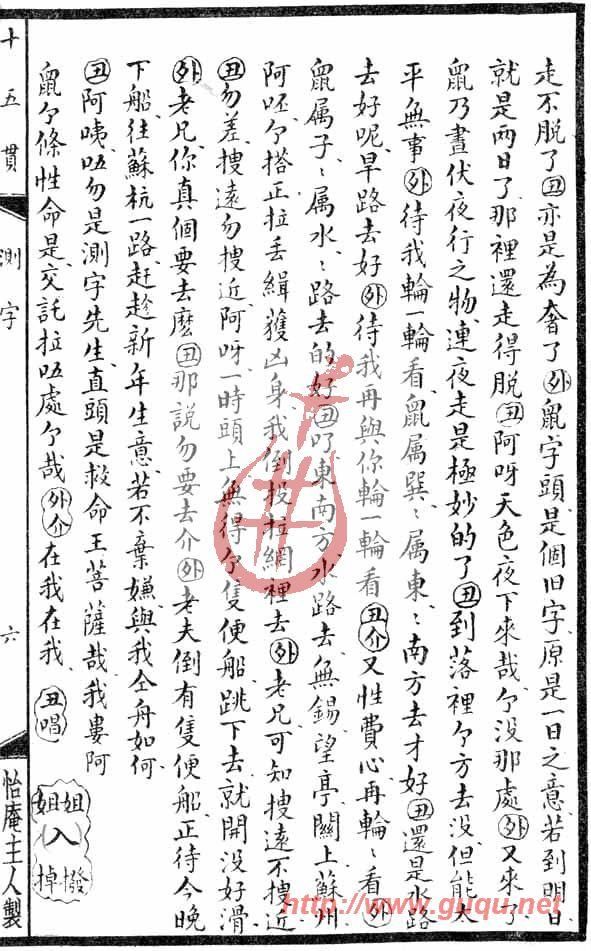 走不脱了(丑)亦是為奢了(外)鼠字頭是個旧字原是一日之意若到明日
就是两日了那裡還走得脱(丑)阿呀天色夜下來哉个没那處(外)又來了
鼠乃晝伏夜行之物連夜走是極妙的了(丑)到落裡个方去没但能太
平無事(外)待我輪一輪看鼠属巽〻属東〻南方去才好(丑)還是水路
去好呢旱路去好(外)待我再與你輪一輪看(丑介)又性費心再輪〻看(外)
鼠属子〻属水〻路去的好(丑)叮東南方水路去無錫望亭關上蘇州
阿呸个搭正拉丢緝獲凶身我倒投拉網裡去(外)老兄可知搜遠不搜近
(丑)勿差搜遠勿搜近阿呀一時頭上無得个隻便船跳下去就開没好滑
(外)老兄你真個要去麽(丑)那説勿要去介(外)老夫倒有隻便船正待今晚
下船往蘇杭一路赶趁新年生意若不棄嫌與我仝舟如何
(丑)阿咦唔勿是測字先生直頭是救命王菩薩哉我婁阿
鼠个條性命是交託拉唔處个哉(外介)在我在我(丑唱)
姐姐(入)撥掉
十五貫
測字
六
怡庵主人製
http://www.guqu.net